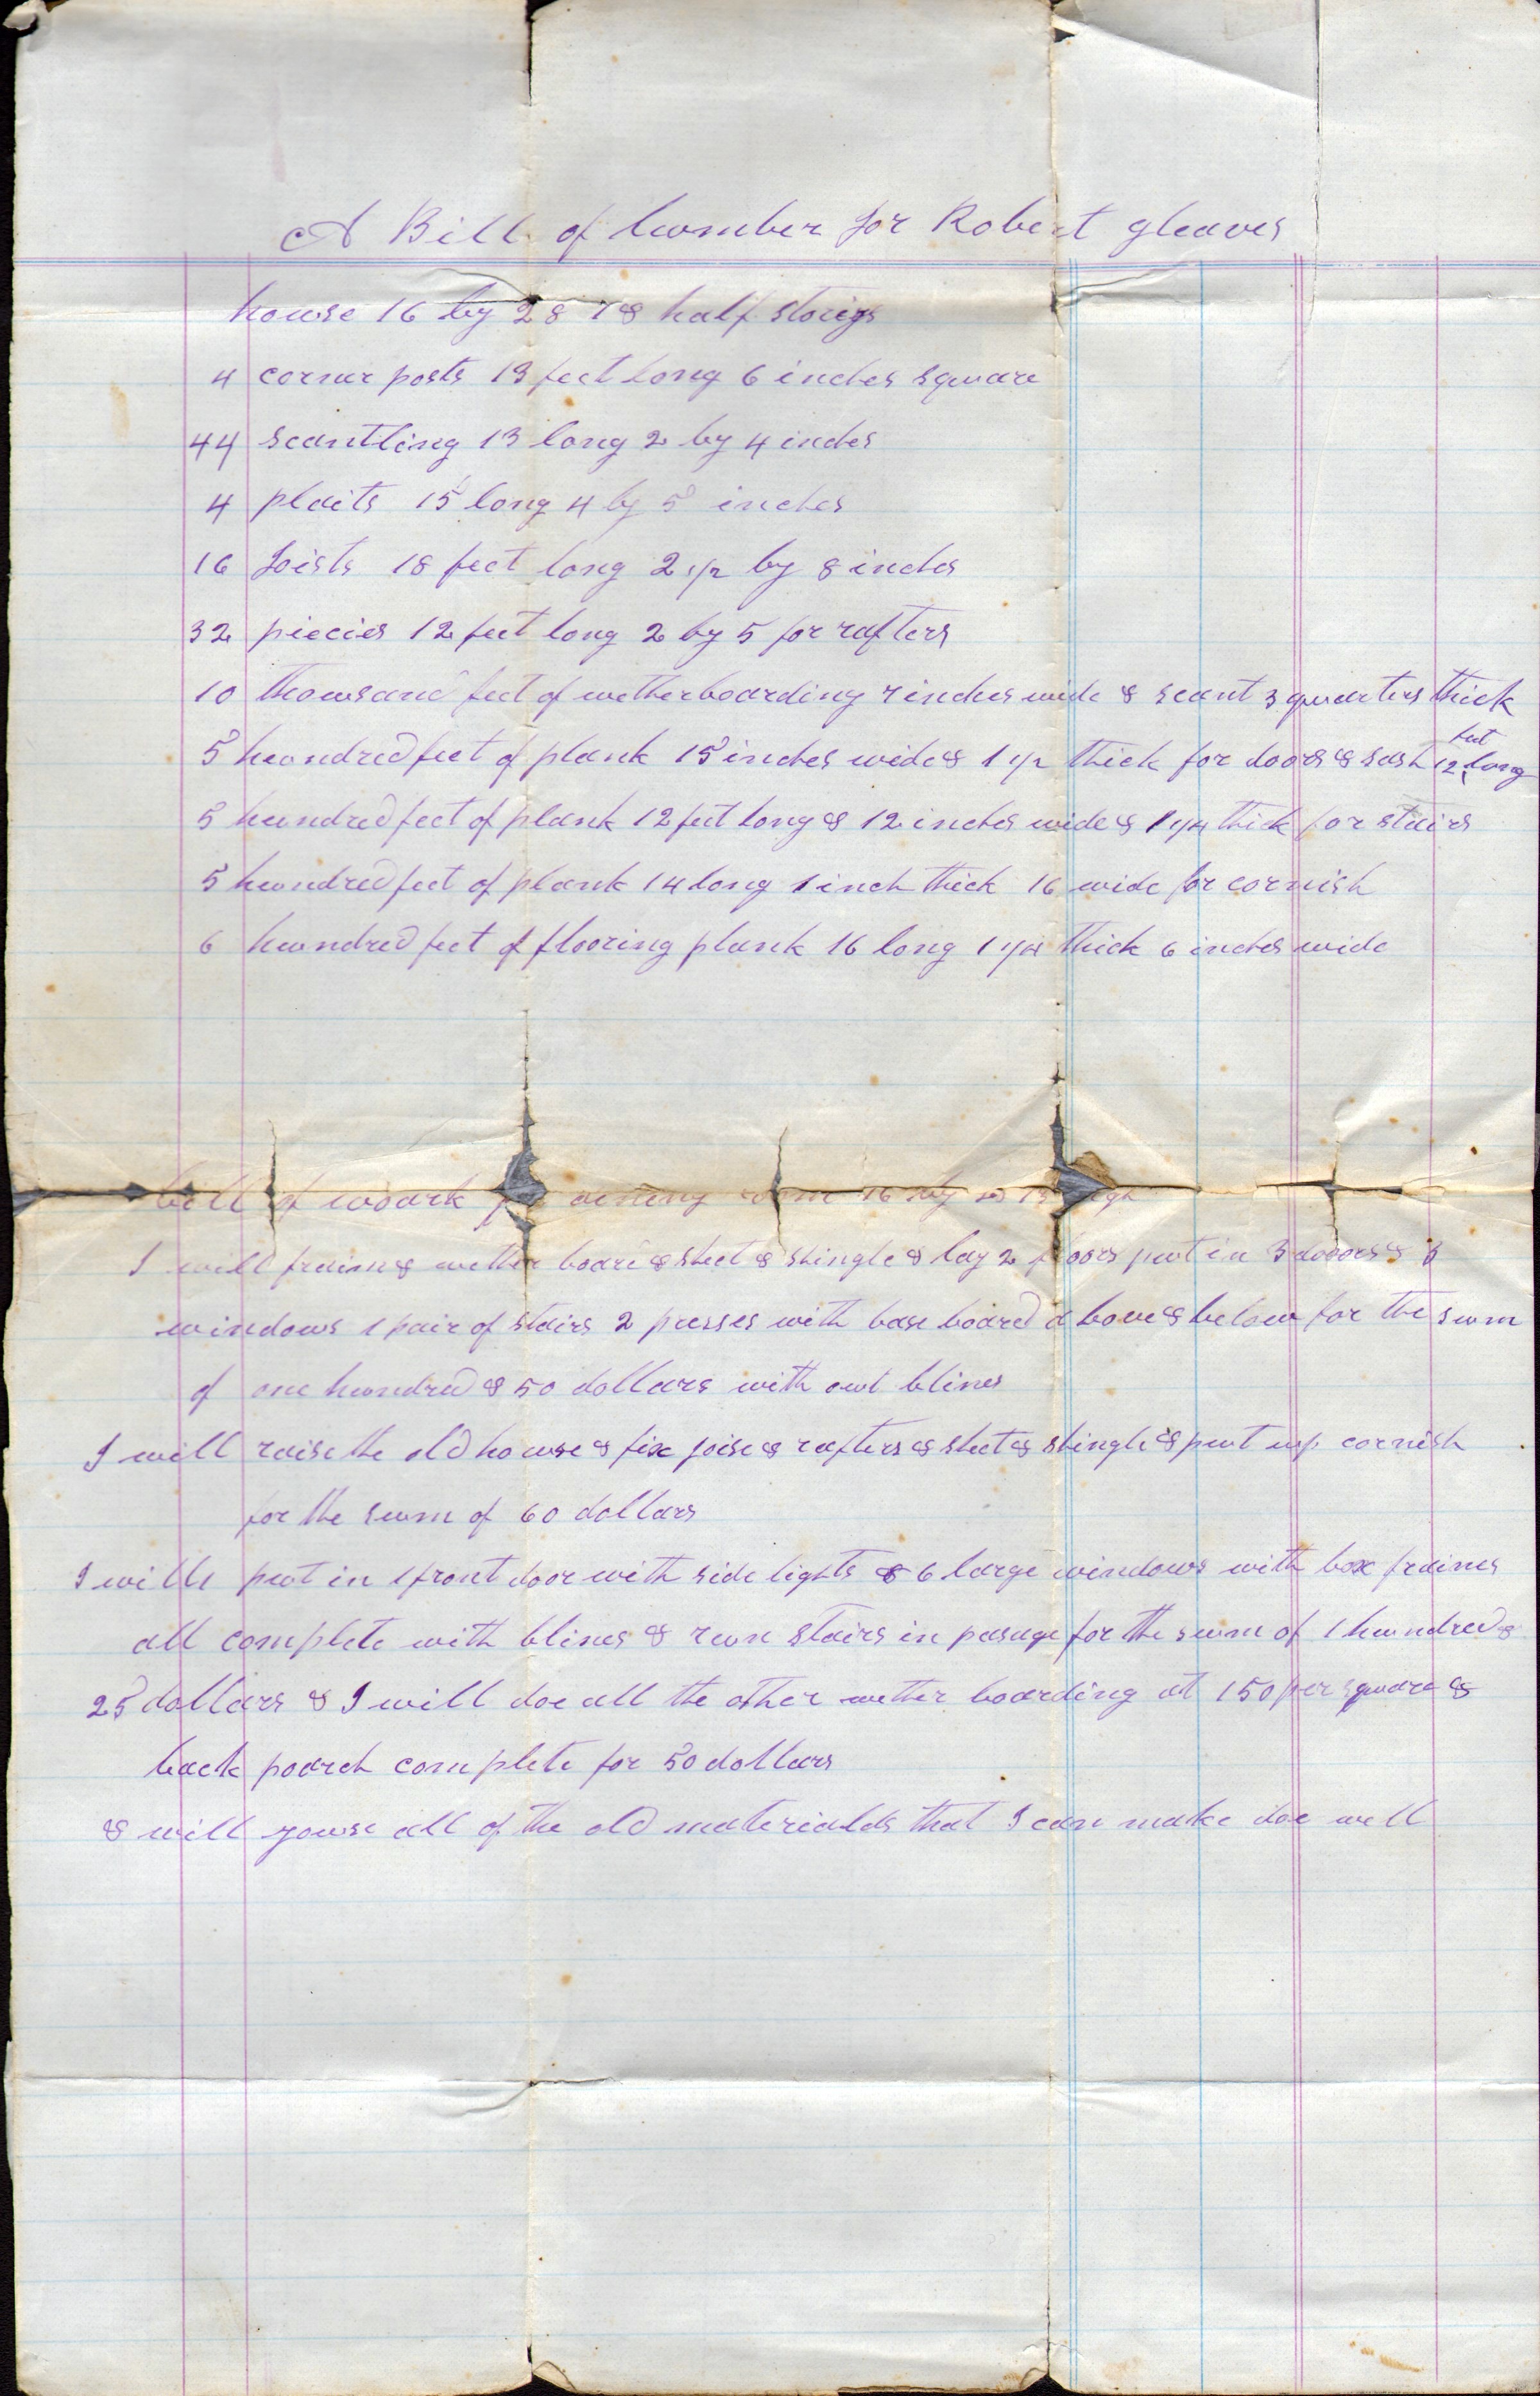 A Bill of lumber for Robert gleaves
house 16 by 28 1 & half storys
4 corner posts 13 feet long 6 inches square
44 scantling 13 long 2 by 4 inches
4 plaits 15 long 4 by 5 inches
16 Joists 18 feet long 2 1/2 by 8 inches
32 piecies 12 feet long 2 by 5 for rafters
10 thousand feet of wetherboarding 7 inches wide & scant 3 quarters thick
5 hundred feet of plank 15 inches wide & 1 1/2 thick for doors & sash 12 feet long
5 hundred feet of plank 12 feet long & 12 inches wide & 1 1/4 thick for stairs
5 hundred feet of plank 14 long 1 inch thick 16 wide for cornish
6 hundred feet of flooring plank 16 long 1 1/4 thick 6 inches wide
bill of woark dining room 16 by 13
I will fraim & wether board & sheet & shingle & lay 2 floors put in 3 dooors & 3
windows 1 pair of stairs 2 presses with base board above & below for the sum
of one hundred & 50 dollars with out blines
I will raise the old house & fix joise & rafters & sheet & shingle & put up cornish
for the sum of 60 dollars
I will put in 1 front door with side lights & 6 large windows with box fraimes
all complete with blines & run stairs in pasage for the sum of 1 hundred &
25 dollars & I will doe all the other wether boarding at 150 per square &
back poarch complete for 50 dollars
& will youse all of the old materialds that I can make doe well